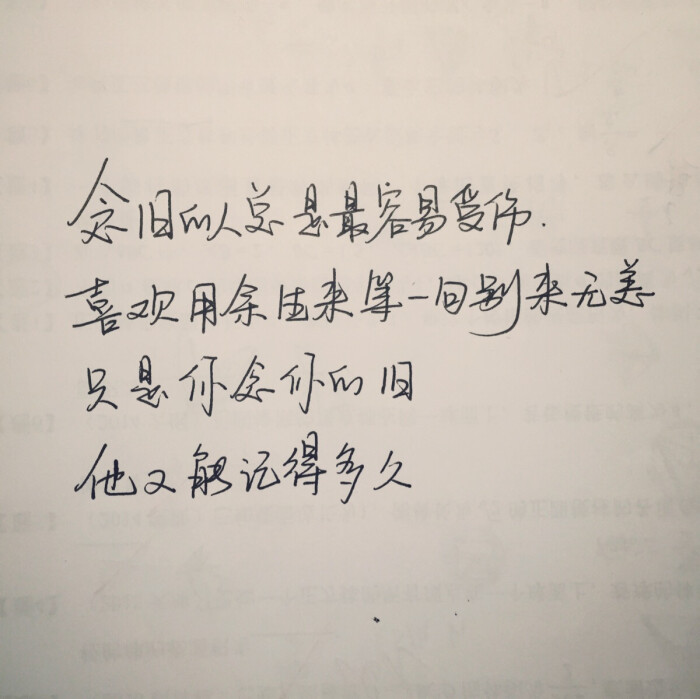 念旧的人总是最容易受伤.
喜欢用余生来等一句别来无恙
只是你念你的旧
他又能记得多久